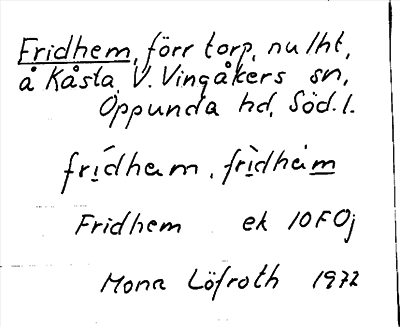 Fridhem, förr torp, nu lht,
å Kåsta, V. Vingåkers sn,
Oppunda hd, Söd. l.
frídhem, frìdhèm
Fridhem ek 10F0j
Mona Löfroth 1972